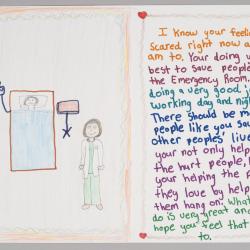 I know your feeling
scared right now a
am to. Your doing
best to save people
the Emergency Room.
doing a very good j
working day and nigh
There should be m
people like you sav
other peoples live
your not only help
the hurt people,
your helping the f
they love by help
them hang on. What
do is very great an
hope you feel that
to.